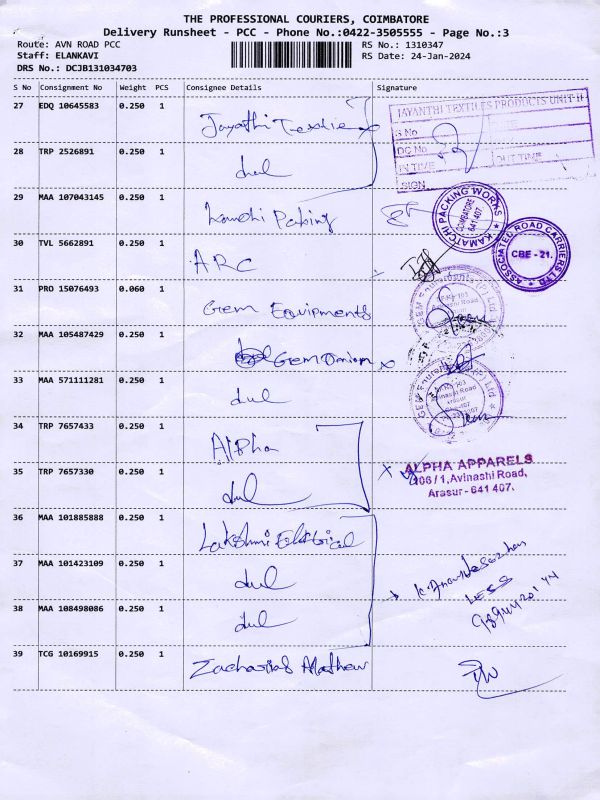 THE PROFESSIONAL COURIERS, COIMBATORE
Delivery Runsheet - PCC - Phone No.:0422-3505555 - Page No.:3
Route: AVN ROAD PCC RS No.: 1310347
Staff: ELANKAVI RS Date: 24-Jan-2024
DRS No.: DCJB131034703
S No Consignment No Weight PCS Consignee Details Signature
27 EDQ 10645583 0.250 1 Jayathi Textile
JAYANTHI TEXTILES PRODUCTS UNIT II
S No
DC No
IN TIME OUT TIME
SIGN
28 TRP 2526891 0.250 1
29 MAA 107043145 0.250 1
KAMATCHI PACKING WORKS
COIMBATORE
641 407
30 TVL 5662891 0.250 1 ARC
ASSOCIATED ROAD CARRIERS LTD
CBE - 21.
31 PRO 15076493 0.060 1 Gem Equipments
32 MAA 105487429 0.250 1 Gem Omion
33 MAA 571111281 0.250 1
34 TRP 7657433 0.250 1 Alpha
35 TRP 7657330 0.250 1
ALPHA APPARELS
106/1, Avinashi Road,
Arasur - 641 407.
36 MAA 101885888 0.250 1 Lakshmi Eletrical
37 MAA 101423109 0.250 1
38 MAA 108498086 0.250 1
LESS
39 TCG 10169915 0.250 1 Zacharias Mathew